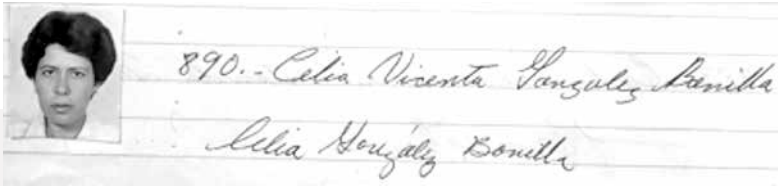 890.- Celia Vicenta Gonzalez Bonilla
Celia González Bonilla